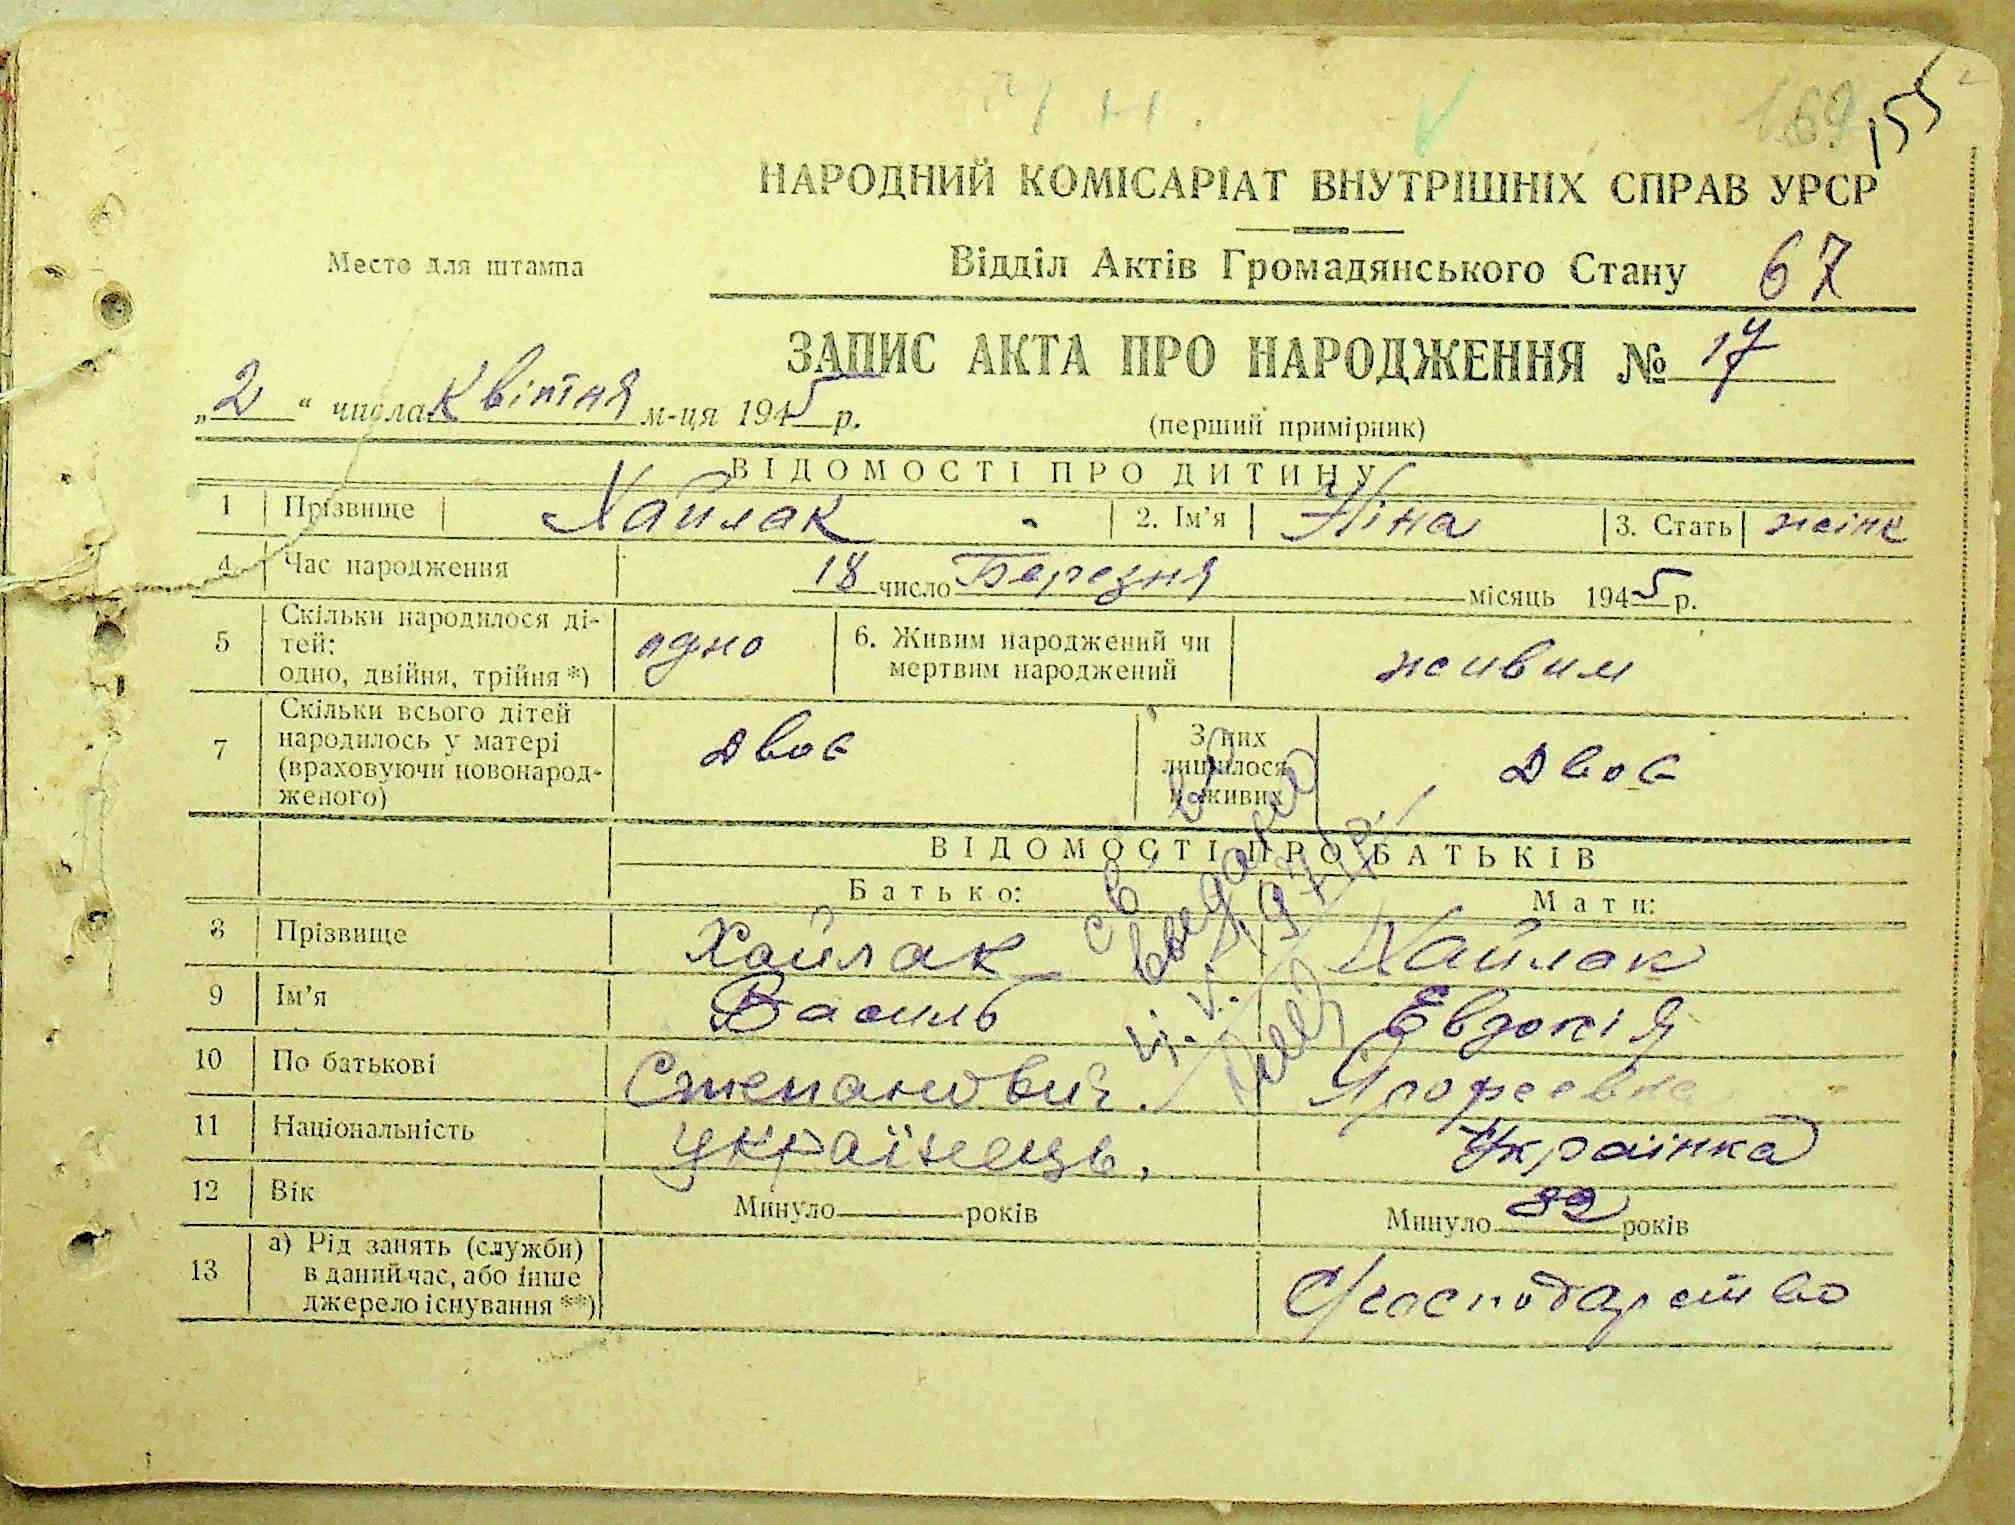 169 155
НАРОДНИЙ КОМІСАРІАТ ВНУТРІШНІХ СПРАВ УРСР
Место для штампа
Відділ Актів Громадянського Стану 67
ЗАПИС АКТА ПРО НАРОДЖЕННЯ № 17
„2“ числа Квітня м-ця 1945 р.
(перший примірник)
ВІДОМОСТІ ПРО ДИТИНУ
1 Прізвище Хайлак 2. Ім'я Ніна 3. Стать жінк
4 Час народження 18 число Березня місяць 1945 р.
5 Скільки народилося ді-
тей:
одно, двійня, трійня *) одно 6. Живим народжений чи
мертвим народжений живим
7 Скільки всього дітей
народилось у матері
(враховуючи новонарод-
женого) двоє З них
лишилося
в живих двоє
ВІДОМОСТІ ПРО БАТЬКІВ
Батько: Мати:
8 Прізвище Хайлак Хайлак
9 Ім'я Василь Евдокія
10 По батькові Степанович Ярофеевна
11 Національність українець. Українка
12 Вік Минуло років Минуло років
13 а) Рід занять (служби)
в даний час, або інше
джерело існування **) С/господарство